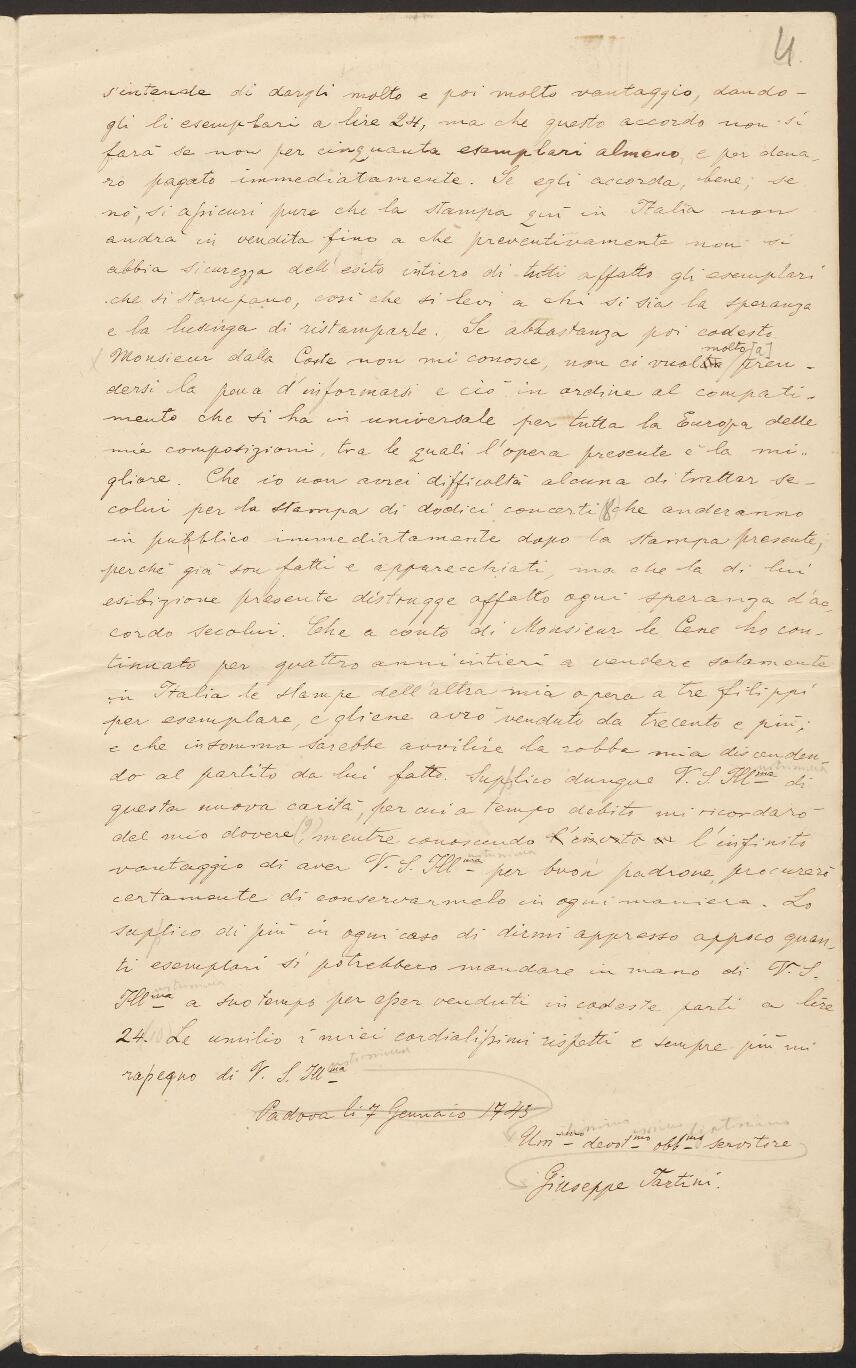 4.
s'intende di dargli molto e poi molto vantaggio, dando-
gli li esemplari a lire 24, ma che questo accordo non si
farà se non per cinquanta esemplari almeno, e per dena-
ro pagato immediatamente. Se egli accorda, bene; se
nò, si assicuri pure che la stampa quì in Italia non
andrà in vendita fino a che preventivamente non si
abbia sicurezza dell'esito intiero di tutti affatto gli esemplari
che si stampano, così che si levi a chi si sia la speranza
e la lusinga di ristamparle. Se abbastanza poi codesto
molto [a]
Monsieur dalla Coste non mi conosce, non ci vuol pren-
dersi la pena d'informarsi e ciò in ordine al compati-
mento che si ha in universale per tutta la Europa delle
mie composizioni, tra le quali l'opera presente è la mi-
gliore. Che io non avrei difficoltà alcuna di trattar se-
colui per la stampa di dodici concerti (8) che anderanno
in pubblico immediatamente dopo la stampa presente,
perchè già son fatti e apparecchiati, ma che la di lui
esibizione presente distrugge affatto ogni speranza d'ac-
cordo secolui. Che a conto di Monsieur le Cene ho con-
tinuato per quattro anni intieri a vendere solamente
in Italia le stampe dell'altra mia opera a tre filippi
per esemplare, e gliene avrò venduto da trecento e più;
e che insomma sarebbe avvilire la robba mia discenden-
do al partito da lui fatto. Supplico dunque V. S. Illma di
ustrissima
questa nuova carità, per cui a tempo debito mi ricordarò
del mio dovere (9), mentre conoscendo l'infinito
ustrissima
vantaggio di aver V. S. Illma per buon padrone, procurerò
certamente di conservarmelo in ogni maniera. Lo
suplico di più in ogni caso di dirmi appresso appoco quan-
ti esemplari si potrebbero mandare in mano di V. S.
ustrissima
Illma a suo tempo per esser venduti in codeste parti a lire
24. (10) Le umilio i miei cordialissimi rispetti e sempre più mi
ustrissima
rapegno di V. S. Illma
Padova li 7 Gennaio 1745
Ummo devotmo obbmo servitore
Giuseppe Tartini.